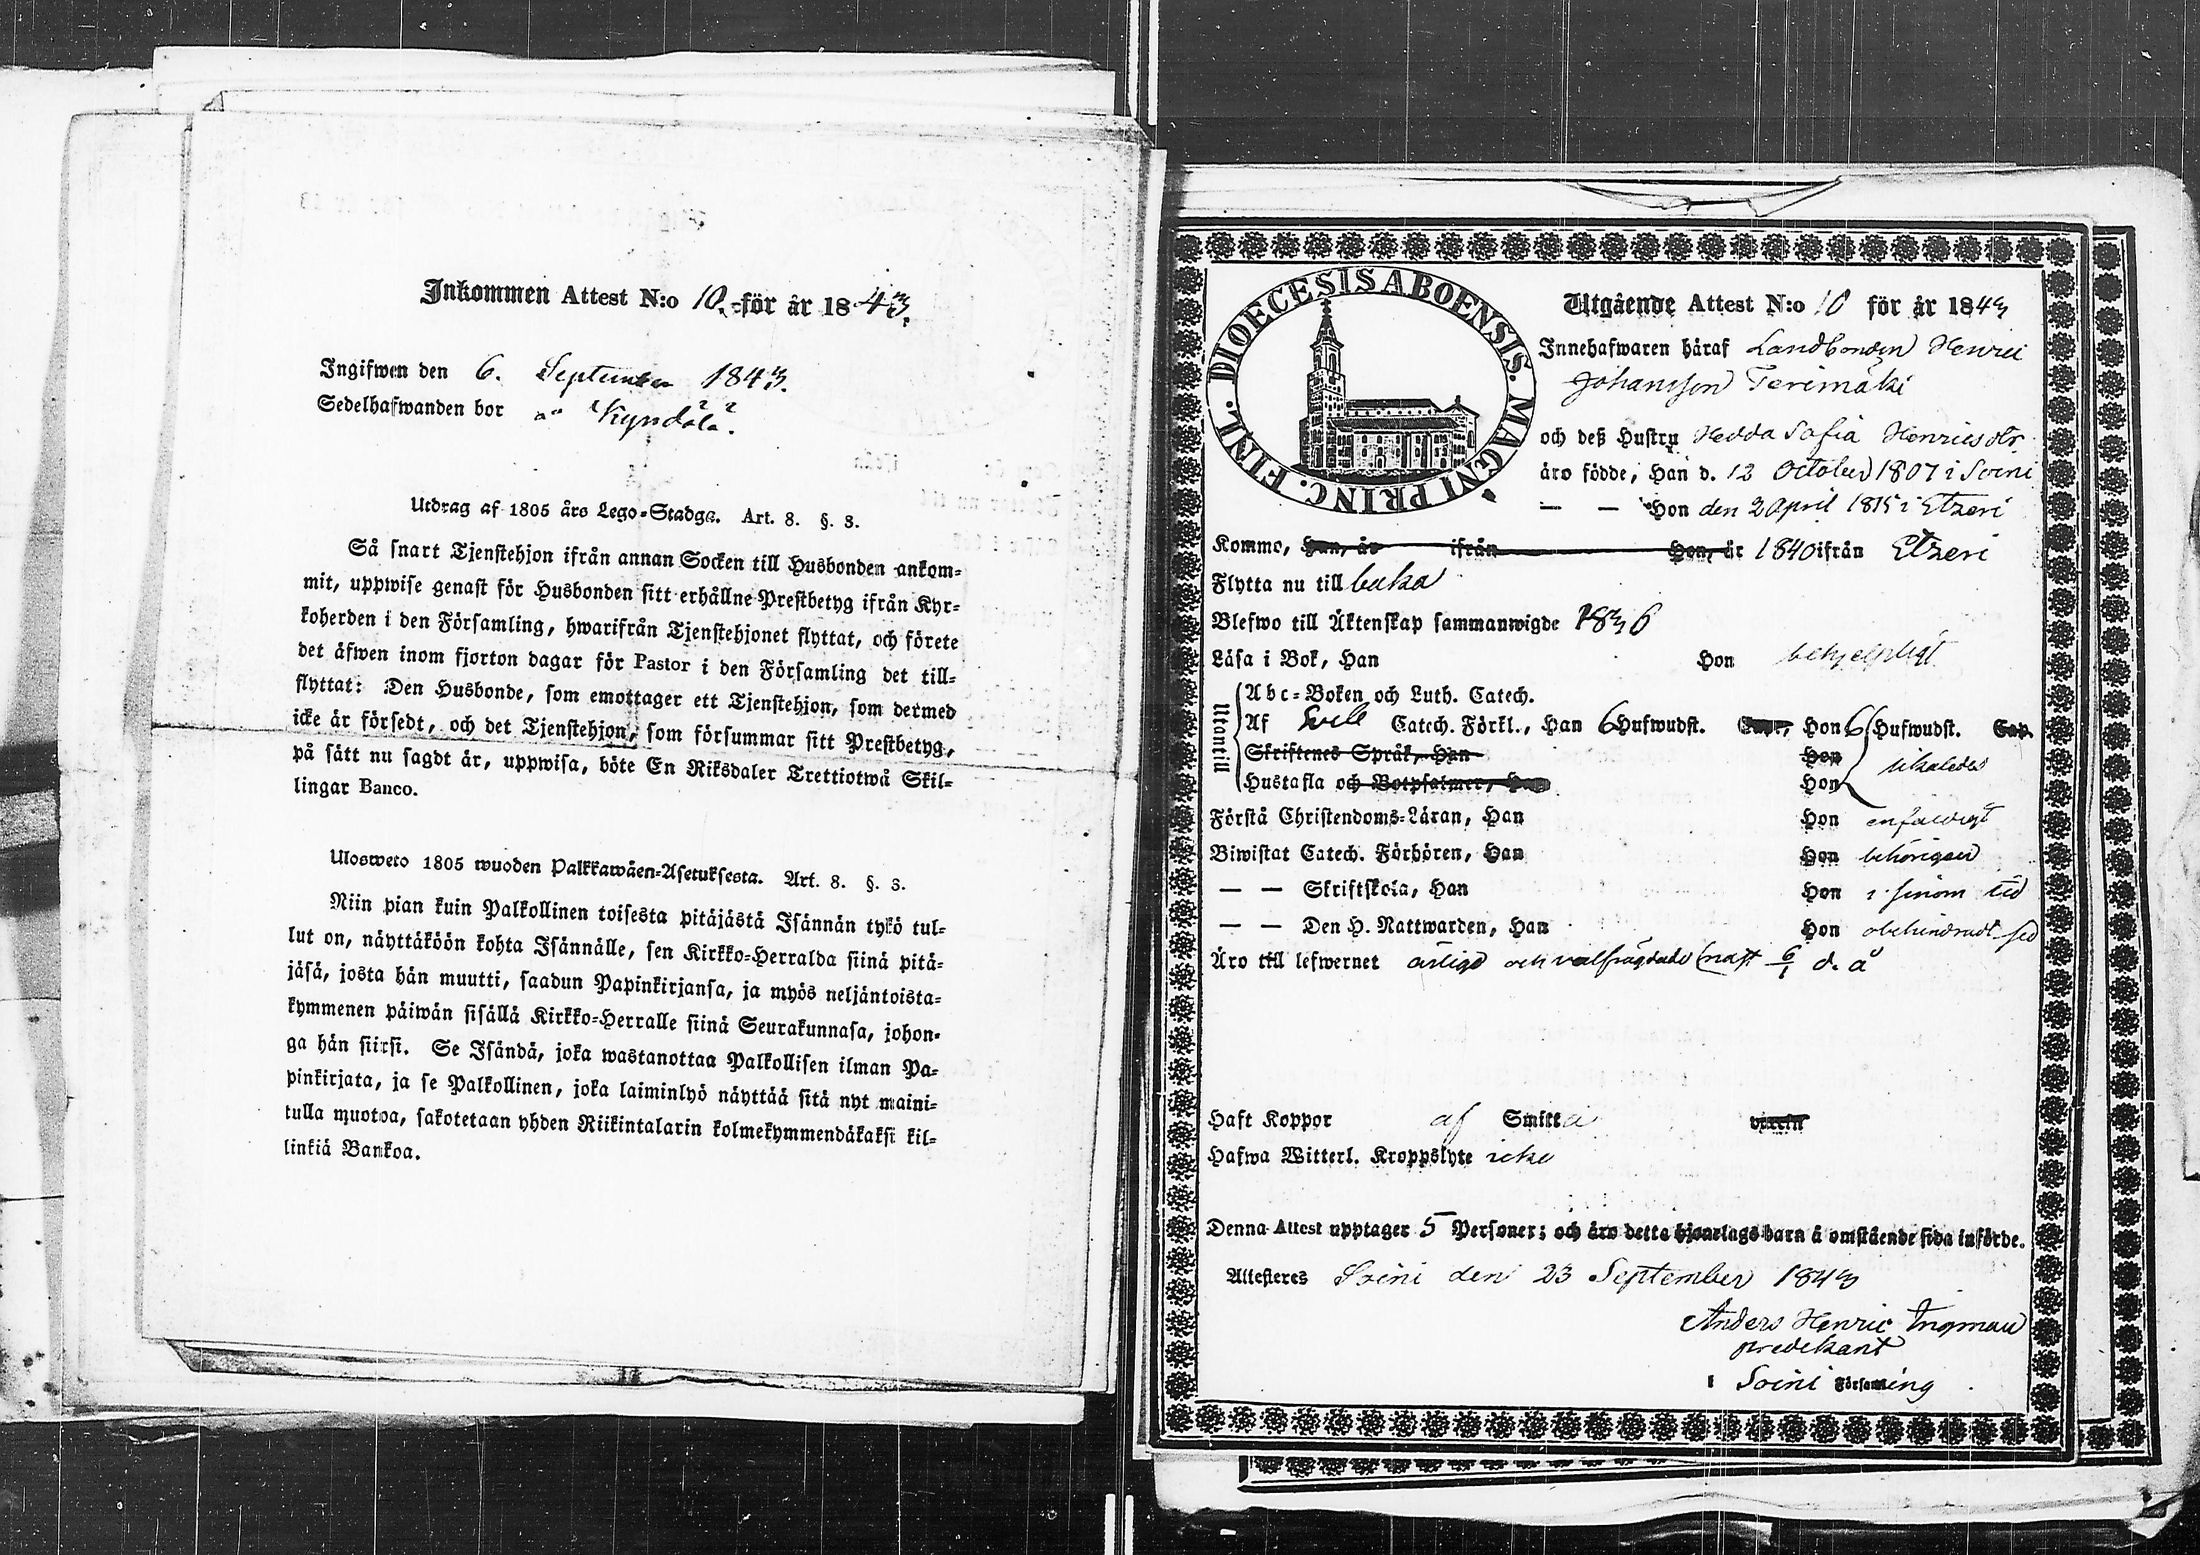 Inkommen Attest N:o 10. för år 1843.
Ingifwen den 6. September 1843.
Sedelhafwanden bor å Kyndölä.
Utdrag af 1805 års Lego-Stadga. Art. 8. §. 3.
Så snart Tjenstehjon ifrån annan Socken till Husbonden ankom-
mit, uppwise genast för Husbonden sitt erhållne Prestbetyg ifrån Kyr-
koherden i den Församling, hwarifrån Tjenstehjonet flyttat, och förete
det äfwen inom fjorton dagar för Pastor i den Församling det till-
flyttat: Den Husbonde, som emottager ett Tjenstehjon, som dermed
icke är försedt, och det Tjenstehjon, som försummar sitt Prestbetyg,
på sätt nu sagdt är, uppwisa, böte En Riksdaler Trettiotwå Skil-
lingar Banco.
Ulosweto 1805 wuoden Palkkawäen-Asetuksesta. Art. 8. §. 3.
Niin pian kuin Palkollinen toisesta pitäjästä Isännän tykö tul-
lut on, näyttäköön kohta Isännälle, sen Kirkko-Herralda siinä pitä-
jäsä, josta hän muutti, saadun Papinkirjansa, ja myös neljäntoista-
kymmenen päiwän sisällä Kirkko-Herralle siinä Seurakunnasa, johon-
ga hän siirsi. Se Isändä, joka wastanottaa Palkollisen ilman Pa-
pinkirjata, ja se Palkollinen, joka laiminlyö näyttää sitä nyt maini-
tulla muotoa, sakotetaan yhden Riikintalarin kolmekymmendäkaksi kil-
linkiä Bankoa.
DIOECESIS ABOENSIS. MAGNI PRINC. FINL.
Utgående Attest N:o 10 för år 1843
Innehafwaren häraf Landbonden Henric
Johansson Terimäki
och deß Hustru Hedda Sofia Henricsdtr
äro födde, Han d. 12 October 1807 i Soini
— — Hon den 2 April 1815 i Etzeri
Kommo, Han, år ifrån Hon, år 1840 ifrån Etzeri
Flytta nu till baka
Blefwo till Äktenskap sammanwigde 1836
Läsa i Bok, Han Hon behjelpligt
Utantill
Abc-Boken och Luth. Catech.
Af Sveb Catech. Förkl., Han 6 Hufwudst. Cap., Hon 6 Hufwudst. Cap.
Skriftenes Språk, Han Hon
Hustafla och Botpsalmer, Han Hon likaledes
Förstå Christendoms-Läran, Han Hon enfaldigt
Biwistat Catech. Förhören, Han Hon behörigen
— — Skriftskola, Han Hon i sinom tid
— — Den H. Nattwarden, Han Hon obehindradt
Äro till lefwernet ärlige och välfrägdade (natt 6/1 d. å
Haft Koppor af Smitta
Hafwa Witterl. Kroppslyte icke
Denna Attest upptager 5 Personer; och äro detta hjonelags barn å omstående sida införde.
Attesteres Soini den 23 September 1843
Anders Henric Ingman
predikant
i Soini Församling